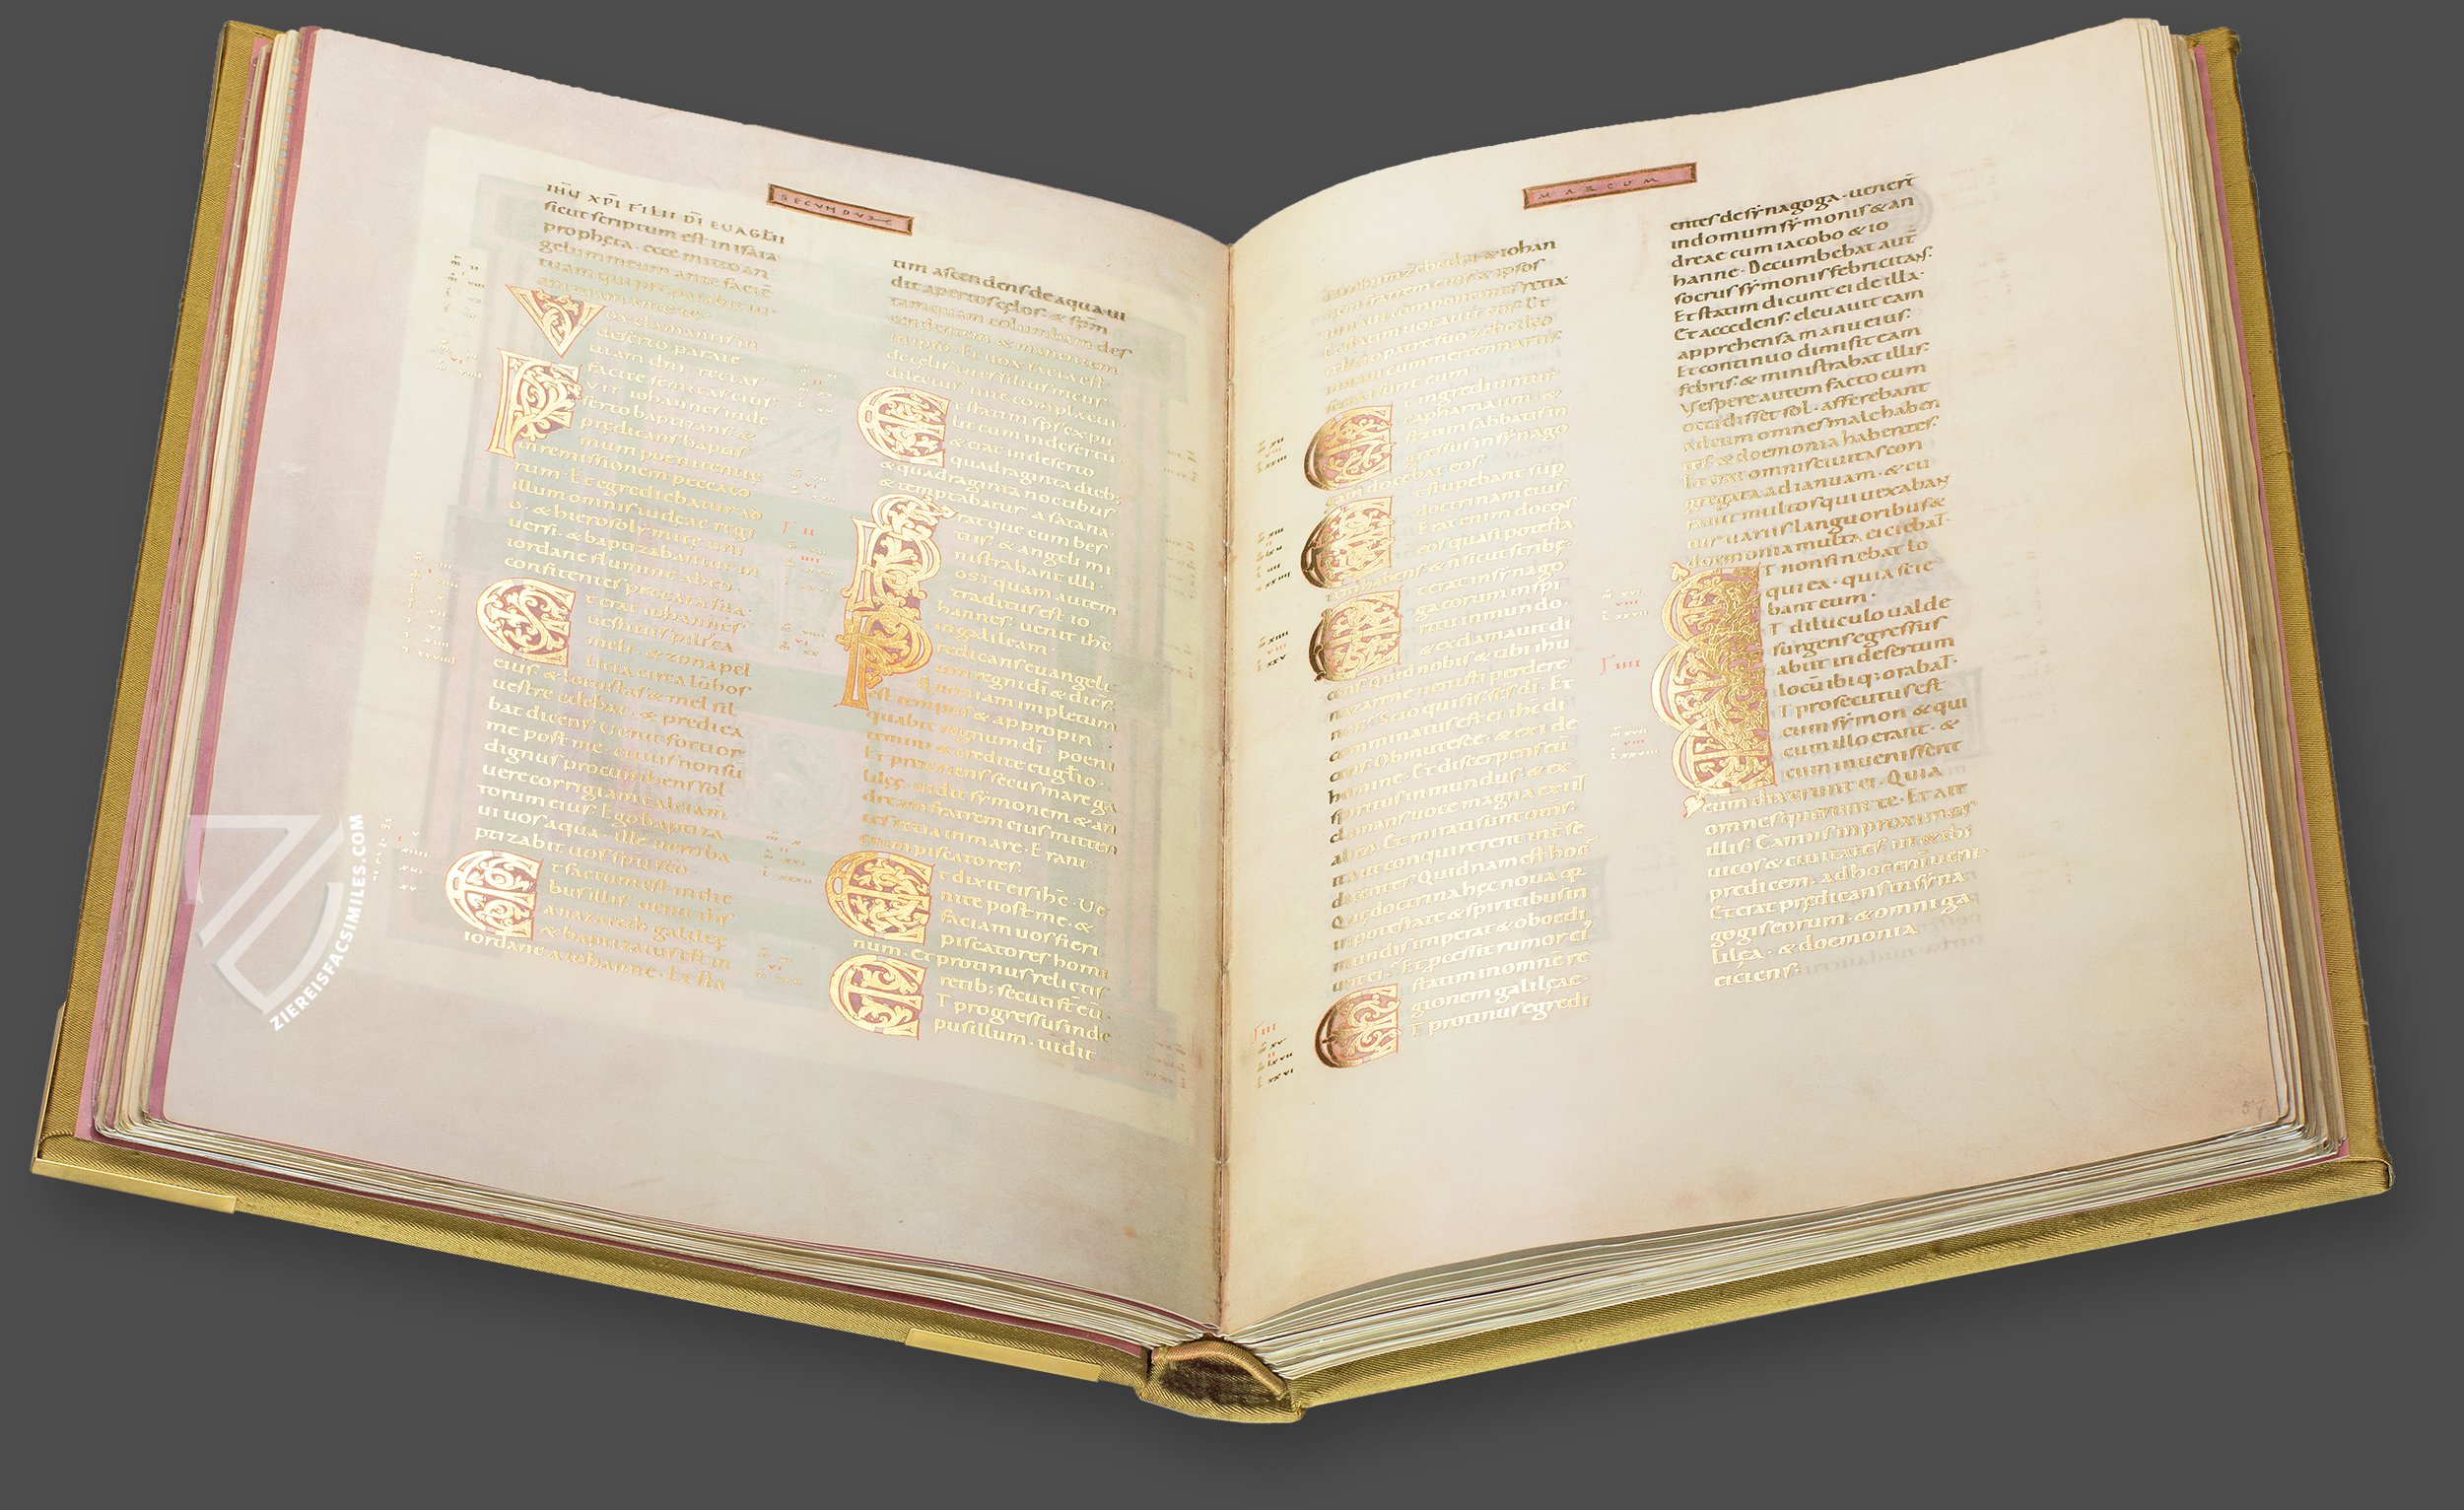 SECUNDUS
IHU XPI FILII DI EUAGELII
sicut scriptum est in isaia
propheta. ecce mitto an
gelum meum ante facie
tuam qui preparabit ui
am tuam ante te.
Vox clamantis in
deserto parate
uiam dni rectas
facite semitas eius
Fuit iohannes in de
serto baptizans &
predicans baptis
mum poenitentię
in remissionem peccato
rum. Et egrediebatur ad
illum omnis iudęae regi
o. & hierosolymitę uni
uersi. & baptizabantur in
iordane flumine ab eo.
confitentes peccata sua.
Et erat iohannes
uestitus pilis ca
meli. & zona pel
licia circa lūbos
eius. & locustas & mel sil
uestre edebat. & predica
bat dicens. Uenit fortior
me post me. cuius non sū
dignus procumbens sol
uere corrigiam calciam
torum eius. Ego baptiza
ui uos aqua. ille uero ba
ptizabit uos spu sco.
Et factum est in die
bus illis. uenit ihs
a nazareth galileę
& baptizatus est in
iordane a iohanne. Et sta
tim ascendens de aqua ui
dit apertos cęlos. & spm
tamquam columbam des
cendentem & manentem
in ipso. Et uox facta est
de celis. tu es filius meus
dilectus in te complacui.
Et statim sps expu
lit eum in desertū
& erat in deserto
quadraginta dieb;
& quadraginta noctibus
& temptabatur a satana.
Eratque cum bes
tiis. & angeli mi
nistrabant illi.
Postquam autem
traditus est io
hannes. uenit ihc
in galileam.
Predicans euangeli
um regni di & dicēs.
Quoniam impletum
est tempus & appropin
quabit regnum di. poeni
temini & credite euglio.
Et preteriens secus mare ga
lileę. uidit symonem & an
dream fratrem eius mitten
tes retia in mare. Erant
enim piscatores.
Et dixit eis ihc. Ue
nite post me. &
faciam uos fieri
piscatores homi
num. Et protinus relictis
retib; secuti st eū.
ET progressus inde
pusillum. uidit
MARCUM
iacobum zebedei & iohan
nem fratrem eius & ipsos
in naui componentes retia
Et statim uocauit eos. Et
relicto patre suo zebedeo
in naui cum mercennariis
secuti sunt eum.
Et ingrediuntur
capharnaum. &
statim sabbatis in
gressus in synago
gam docebat eos.
Et stupebant sup
doctrina eius.
Erat enim docēs
eos quasi potesta
tem habens & n sicut scribę.
Et erat in synago
ga eorum in spi
ritu inmundo.
& exclamauit di
cens. Quid nobis & tibi ihū
nazarene uenisti perdere
nos. Scio qui sis. scs di. Et
comminatus est ei ihc di
cens. Obmutesce. & exi de
homine. Et discerpens eū
spiritus inmundus. & ex
clamans uoce magna exiit
ab eo. Et mirati sunt oms.
ita ut conquirerent int se
dicentes. Quidnam est hoc
Quę doctrina hęc noua qa
in potestate & spiritibus in
mundis imperat & oboedi
unt ei. Et pcessit rumor ei
statim in omne re
gionem galileae.
ET protinus egredi
entes de synagoga. uenert
in domum symonis & an
dreae cum iacobo & io
hanne. Decumbebat aut
socrus symonis febricitas.
Et statim dicunt ei de illa.
Et accedens. eleuauit eam
apprehensa manu eius.
Et continuo dimisit eam
febris. & ministrabat illis.
Vespere autem facto cum
occidisset sol. afferebant
ad eum omnes male haben
tes. & doemonia habentes.
Et erat omnis ciuitas con
gregata ad ianuam. & cu
rauit multos qui uexabant
uir uariis languoribus &
doemonia multa eiciebat.
ET non sinebat lo
qui ea. quia scie
bant eum.
ET diluculo ualde
surgens egressus
abiit in desertum
locū ibiq; orabat.
ET prosecutus est
eum symon & qui
cum illo erant. &
cum inuenissent
eum dixerunt ei. Quia
omnes quęrunt te. Et ait
illis. Eamus in proximos
uicos & ciuitates. ut & ibi
predicem. ad hoc eni ueni.
Et erat predicans in syna
gogis eorum. & omni ga
lilęa. & doemonia
eiciens.
57
ZIEREISFACSIMILES.COM